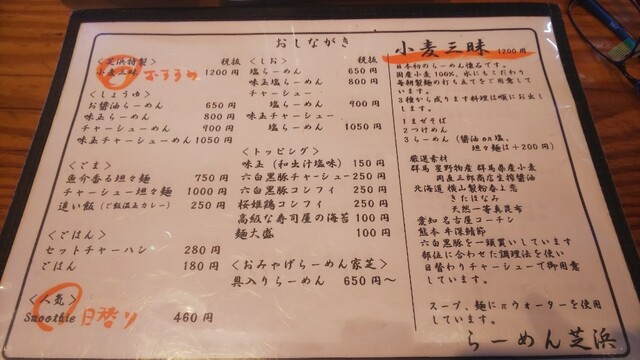 おしながき
<芝浜特製> 税抜
小麦三昧 1200円
おすすめ
<しょうゆ>
お醤油らーめん 650円
味玉らーめん 800円
チャーシューめん 900円
味玉チャーシューめん 1050円
<ごま>
魚介香る坦々麺 750円
チャーシュー坦々麺 1000円
追い飯(ご飯温玉カレー) 250円
<ごはん>
セットチャーハン 280円
ごはん 180円
<人気>
Smoothie 日替り 460円
<しお> 税抜
塩らーめん 650円
味玉塩らーめん 800円
チャーシュー
塩らーめん 900円
味玉チャーシュー
塩らーめん 1050円
<トッピング>
味玉(和出汁塩味) 150円
六白黒豚チャーシュー 250円
六白黒豚コンフィ 250円
桜姫鶏コンフィ 250円
高級な寿司屋の海苔 100円
麺大盛 100円
<おみやげらーめん家芝>
具入りらーめん 650円~
小麦三昧 1200円
日本初のらーめん懐石です。
国産小麦100%、水にもこだわう
毎朝製麺の打ち立てをご用意して
います。
3種から成ります料理は順にお出し
します。
1まぜそば
2つけめん
3らーめん(醤油on塩、
坦々麺は+200円)
厳選素材
群馬 星野物産 群馬県産小麦
岡直三郎商店生搾醤油
北海道 横山製粉春よ恋
きたほなみ
天然一等真昆布
愛知 名古屋コーチン
熊本 牛深鯖節
六白黒豚を一頭買いしています
部位に合わせた調理法を使い
日替わりチャーシューで御用意
しています。
スープ、麺にπウォーターを使用
しています。
らーめん芝浜